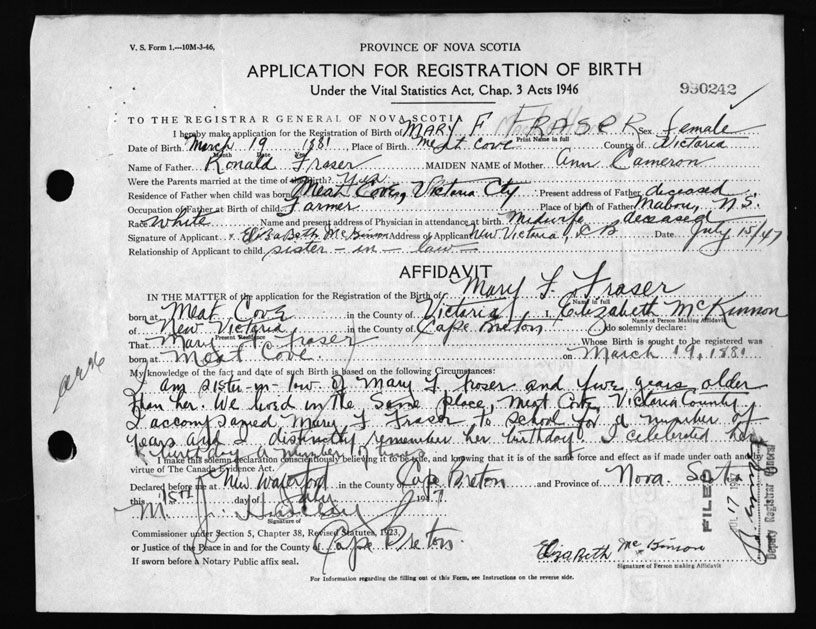 V. S. Form 1.—10M-3-46.
PROVINCE OF NOVA SCOTIA
APPLICATION FOR REGISTRATION OF BIRTH
Under the Vital Statistics Act, Chap. 3 Acts 1946
930242
TO THE REGISTRAR GENERAL OF NOVA SCOTIA
I hereby make application for the Registration of Birth of MARY F FRASER Sex female
Print Name in full
Date of Birth March 19 1881, Place of Birth Meat Cove County of Victoria
Month Date Year
Name of Father Ronald Fraser MAIDEN NAME of Mother Ann Cameron
Were the Parents married at the time of the Birth? Yes
Residence of Father when child was born Meat Cove, Victoria Cty Present address of Father deceased
Occupation of Father at Birth of child Farmer Place of birth of Father Mabou, N.S.
Race White Name and present address of Physician in attendance at birth Midwife deceased
Signature of Applicant ElizaBeth McKinnon Address of Applicant New Victoria, CB Date July 15/47
Relationship of Applicant to child sister-in-law
AFFIDAVIT
IN THE MATTER of the application for the Registration of the Birth of Mary F. Fraser
Name in full
born at Meat Cove in the County of Victoria I, Elizabeth McKinnon
Name of Person Making Affidavit
of New Victoria in the County of Cape Breton do solemnly declare:
Present Residence
That Mary F. Fraser Whose Birth is sought to be registered was
born at Meat Cove. on March 19, 1881
My knowledge of the fact and date of such Birth is based on the following Circumstances:
I am sister-in-law of Mary F Fraser and five years older
than her. We lived in the same place, Meat Cove, Victoria County
I accompanied Mary F Fraser to school for a number of
years and I distinctly remember her birthday. I celebrated her
birthday a number of
I make this solemn declaration conscientiously believing it to be true, and knowing that it is of the same force and effect as if made under oath and by
virtue of The Canada Evidence Act.
Declared before me at New Waterford in Cape Breton and Province of Nova Scotia
this 15th day of July 1947
M. J.
Signature of
Commissioner under Section 5, Chapter 38, Revised Statutes, 1923,
or Justice of the Peace in and for the County of Cape Breton.
If sworn before a Notary Public affix seal.
ElizaBeth McKinnon
Signature of Person making Affidavit
FILED
JUL 17 1947
Deputy Registrar General
For Information regarding the filling out of this Form, see Instructions on the reverse side.